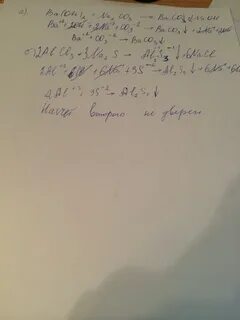 а) Ba(OH)₂ + Na₂CO₃ → BaCO₃↓ + NaOH
Ba⁺² + 2OH⁻ + 2Na⁺ + CO₃⁻² → BaCO₃↓ + 2Na⁺ + 2OH⁻
Ba⁺² + CO₃⁻² → BaCO₃↓
б) 2AlCl₃ + 3Na₂S → Al₂S₃↓ + 6NaCl
2Al⁺³ + 6Cl⁻ + 6Na⁺ + 3S⁻² → Al₂S₃↓ + 6Na⁺ + 6Cl
2Al⁺³ + 3S⁻² → Al₂S₃↓
Насчёт второго не уверен